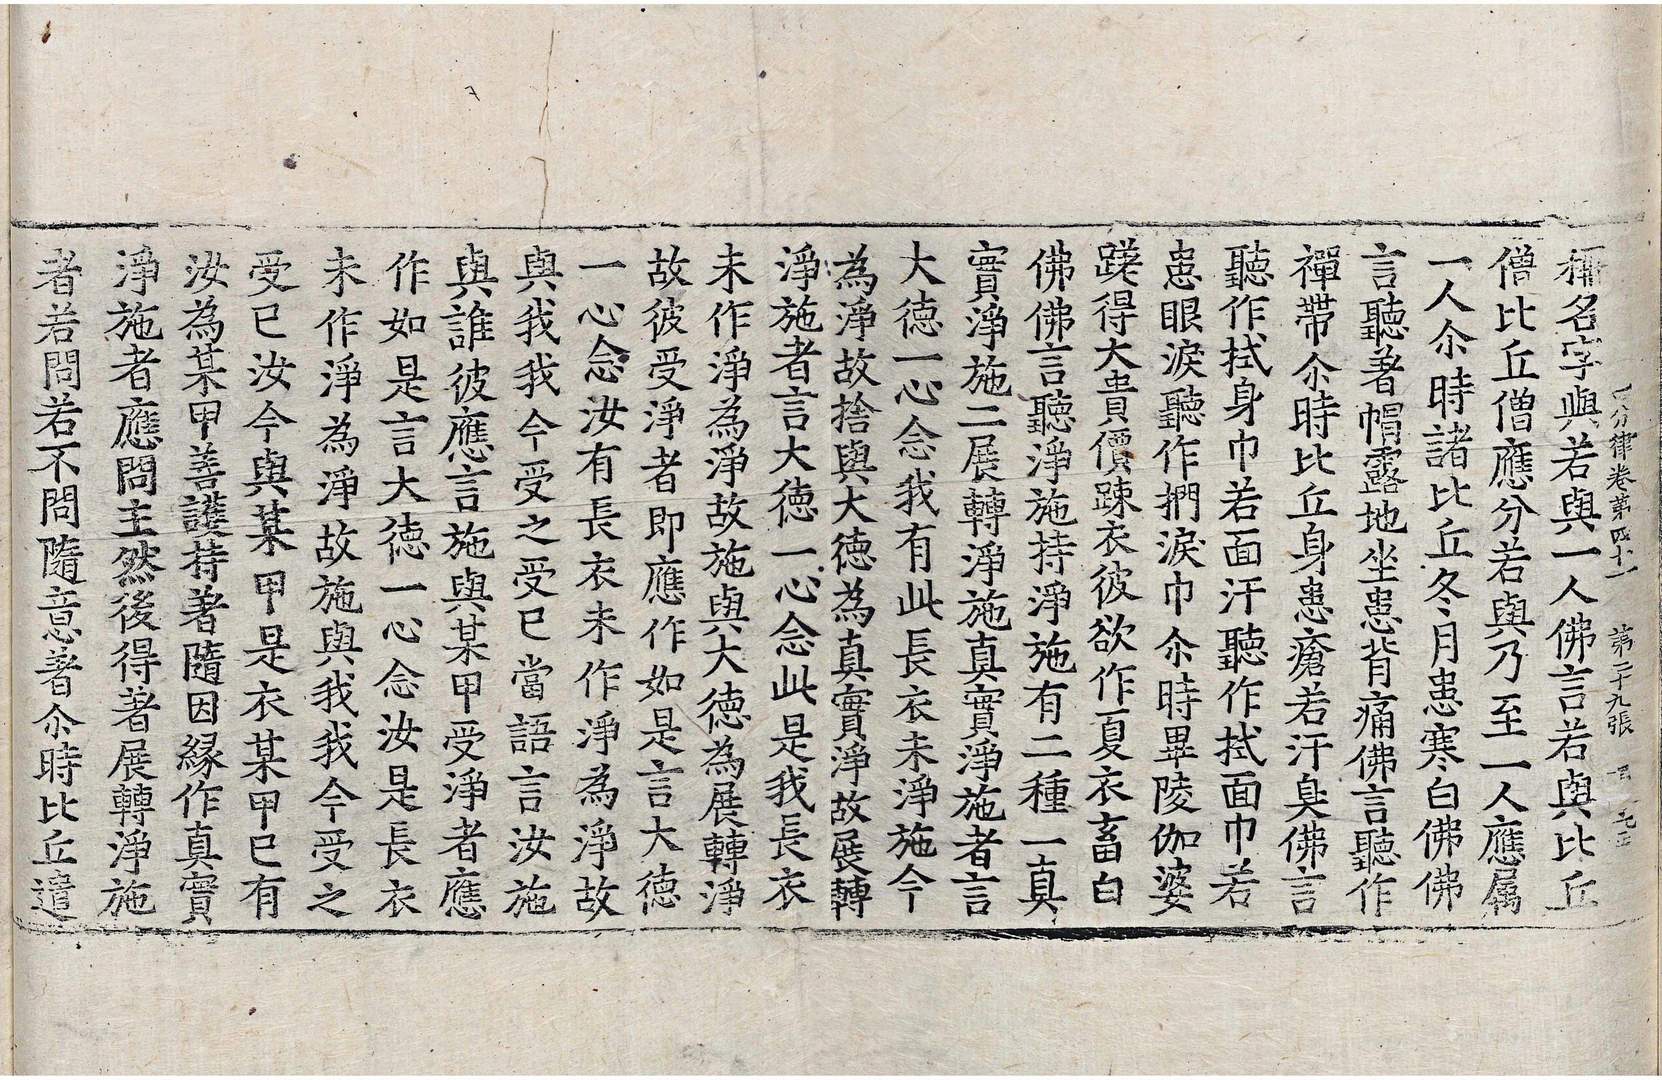 四分律卷第四十一　第二十九張
稱名字與若與一人佛言若與比丘
僧比丘僧應分若與乃至一人應属
一人尒時諸比丘冬月患寒白佛佛
言聽著帽露地坐患背痛佛言聽作
禪帶尒時比丘身患瘡若汗臭佛言
聽作拭身巾若面汗聽作拭面巾若
患眼淚聽作捫淚巾尒時畢陵伽婆
蹉得大貴價踈衣彼欲作夏衣畜白
佛佛言聽淨施持淨施有二種一真
實淨施二展轉淨施真實淨施者言
大德一心念我有此長衣未淨施今
為淨故捨與大德為真實淨故展轉
淨施者言大德一心念此是我長衣
未作淨為淨故施與大德為展轉淨
故彼受淨者即應作如是言大德
一心念汝有長衣未作淨為淨故
與我我今受之受已當語言汝施
與誰彼應言施與某甲受淨者應
作如是言大德一心念汝是長衣
未作淨為淨故施與我我今受之
受已汝今與某甲是衣某甲已有
汝為某甲善護持著隨因緣作真實
淨施者應問主然後得著展轉淨施
者若問若不問隨意著尒時比丘遣